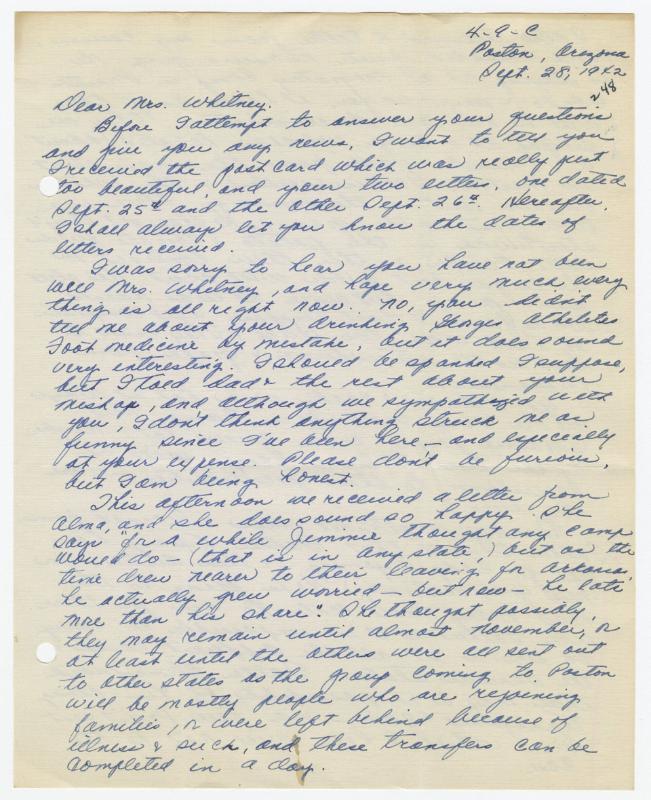 4-9-C
Poston, Arizona
Sept. 28, 1942
248
Dear Mrs. Whitney.
Before I attempt to answer your questions
and give you any news, I want to tell you
I received the post card which was really just
too beautiful, and your two letters, one dated
Sept. 25th and the other Sept. 26th. Hereafter,
I shall always let you know the dates of
letters received.
I was sorry to hear you have not been
well Mrs. Whitney, and hope very much every
thing is all right now. No, you didn't
tell me about your drinking Georges Athletes
Foot medicine by mistake, but it does sound
very interesting. I should be spanked I suppose,
but I told dad & the rest about your
mishap, and although we sympathized with
you, I don't think anything struck me as
funny since I've been here — and especially
at your expense. Please don't be furious,
but I am being honest.
This afternoon we received a letter from
Alma, and she does sound so happy. She
says "for a while Jimmie thought any camp
would do — (that is in any state,) but as the
time drew nearer to their leaving for Arkansas,
he actually grew worried — but now — he eats
more than his share". She thought possibly,
they may remain until almost November, or
at least until the others were all sent out
to other states as the group coming to Poston
will be mostly people who are rejoining
families, or were left behind because of
illness & such, and these transfers can be
completed in a day.